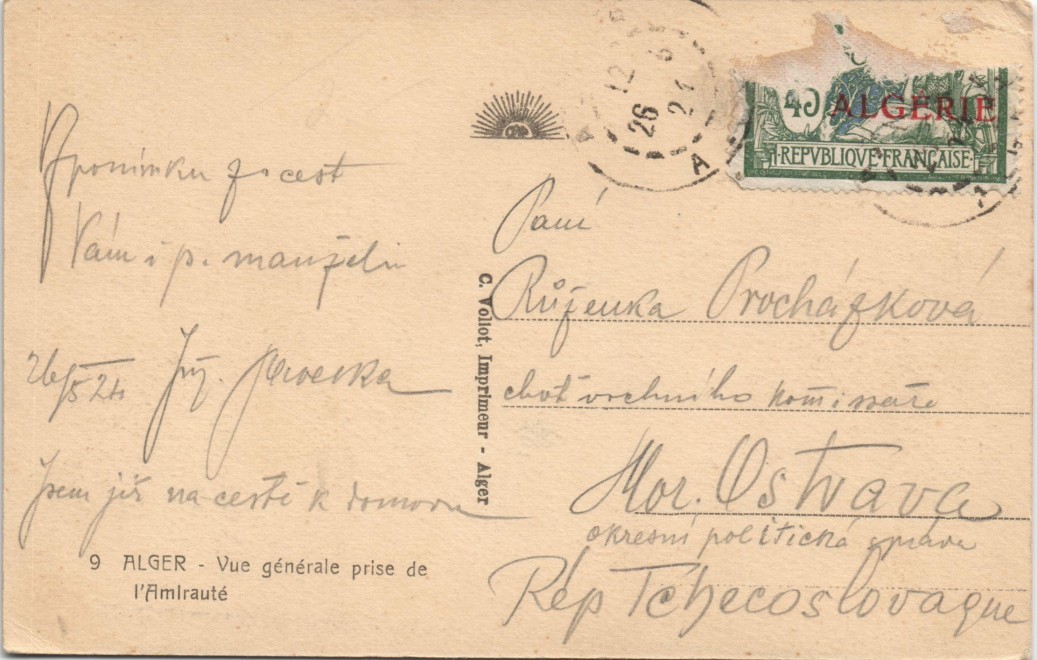 Vzpomínku z cest
Vám i p. manželu
26/5 24 Inž.
Jsem již na cestě k domovu
9 ALGER - Vue générale prise de
l'Amirauté
C. Vollot, Imprimeur - Alger
12
26 5
24
A
45 ALGÉRIE
REPVBLIQVE FRANÇAISE
Paní
Růženka Procházková
choť vrchního komisaře
Mor. Ostrava
okresní politická správa
Rep Tchecoslovaque